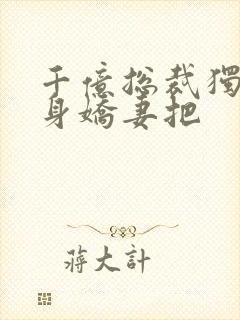 千億總裁獨
身嬌妻把
蔣大計